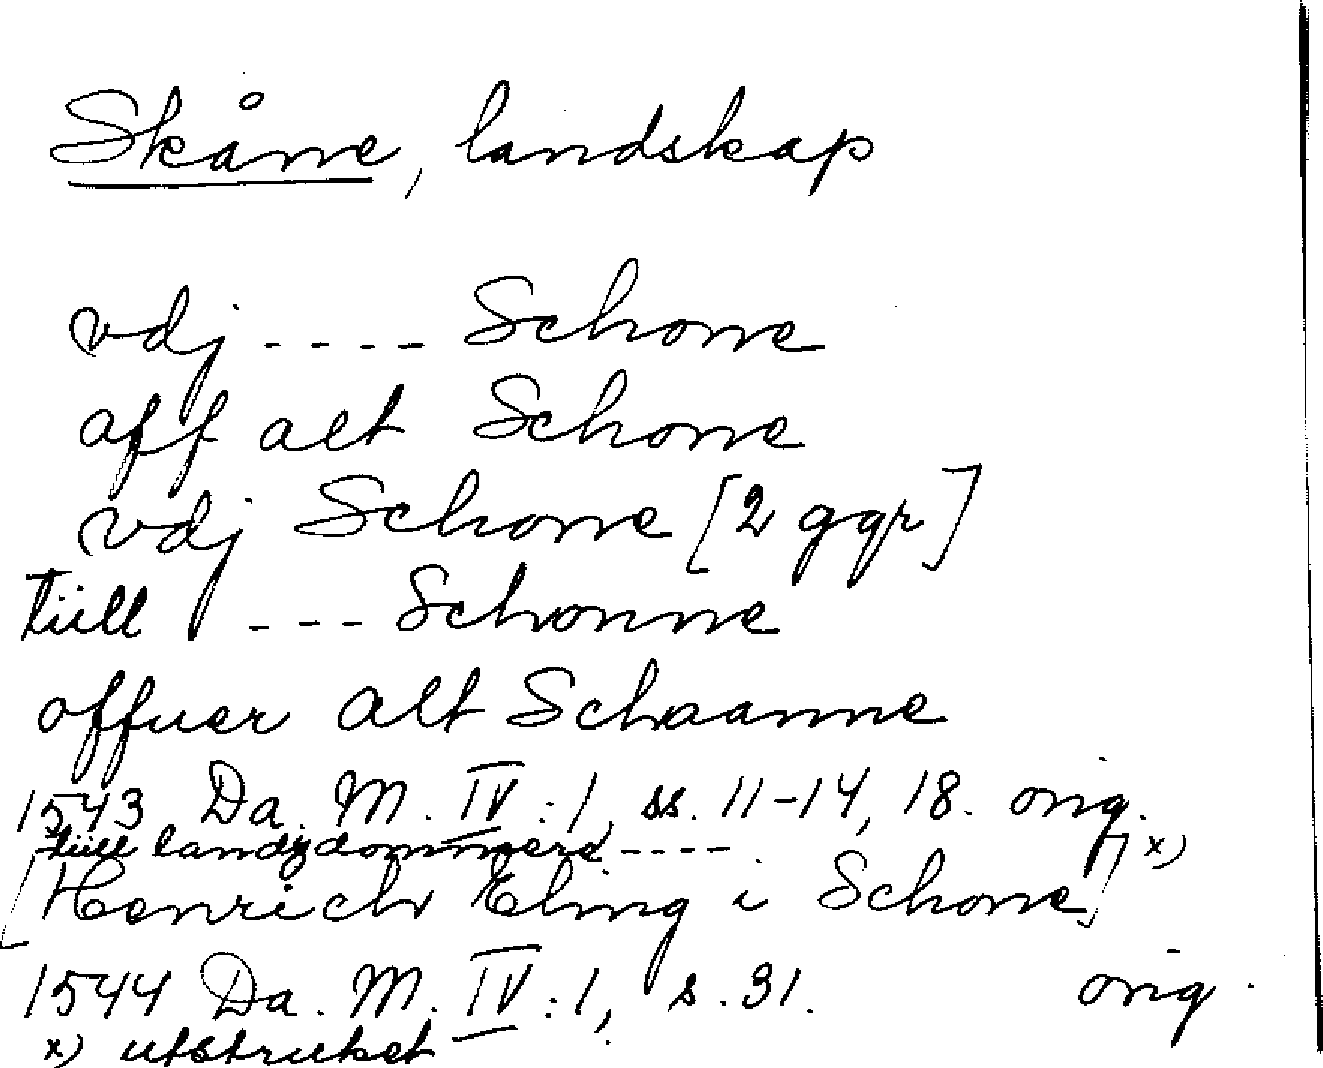 Skåne, landskap
vdj ---- Schone
aff alt Schone
vdj Schone [2 ggr]
tiill --- Schonne
offuer alt Schaanne
1543 Da. M. IV:1, ss. 11-14, 18. orig.
tiill landzdommere ----
[Henrich Eling i Schone] x)
1544 Da. M. IV:1, s. 31. orig.
x) utstruket